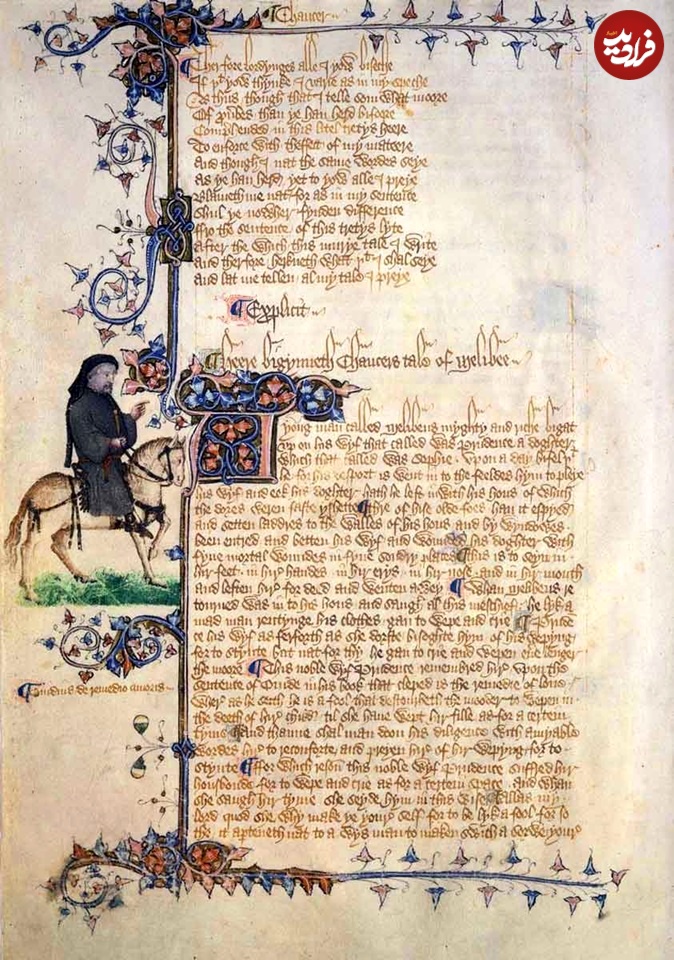 Chaucer
فرادید
Therfore lordynges alle I yow biseche
If þt yow thynke I varie as in my speche
As thus though that I telle som what moore
Of prouerbes than ye han herd bifoore
Comprehended in this litel tretys heere
To enforce with theffect of my mateere
And though I nat the same wordes seye
As ye han herd yet to yow alle I preye
Blameth me nat for as in my sentence
Shul ye nowher fynden difference
ffro the sentence of this tretys lyte
After the which this murye tale I write
And therfore herkneth what þt I shal seye
And lat me tellen al my tale I preye
¶ Explicit
¶ Heere bigynneth Chaucers tale of Melibee
A yong man called Melibeus myghty and riche bigat
vp on his wyf that called was Prudence a doghter
which that called was Sophie Vpon a day bifel þt
he for his desport is went in to the feeldes hym to pleye
his wyf and eek his doghter hath he left in with his hous of which
the dores weren faste yshette ¶ Thre of hise olde foes han it espyed
and setten laddres to the walles of his hous and by wyndowes
been entred and betten his wyf and wounded his doghter with
fyue mortal woundes in fyue sondry places ¶ This is to seyn in
hir feet in hir handes in hir erys in hir nose and in hir mouth
and leften hir for deed and wenten awey ¶ Whan Melibeus re
tourned was in to his hous and saugh al this meschief he lyk a
mad man rentynge his clothes gan to wepe and crie ¶ Pruden
ce his wyf as ferforth as she dorste bisoghte hym of his wepyng
for to stynte but nat for thy he gan to crie and wepen euere lenger
the moore ¶ This noble wyf Prudence remembred hir vpon the
sentence of Ouide in his book that cleped is the remedie of loue
Ouidius de remedio amoris
Wher as he seith he is a fool that destourbeth the mooder to wepen in
the deeth of hir child til she haue wept hir fille as for a certein
tyme ¶ and thanne shal man doon his diligence with amyable
wordes hir to reconforte and preyen hir of hir wepyng for to
stynte ¶ ffor which reson this noble wyf Prudence suffred hir
housbonde for to wepe and crie as for a certein space and whan
she saugh hir tyme she seyde hym in this wise ¶ Allas my
lord quod she why make ye youre self for to be lyk a fool for so
the it aperteneth nat to a wys man to maken swich a sorwe youre